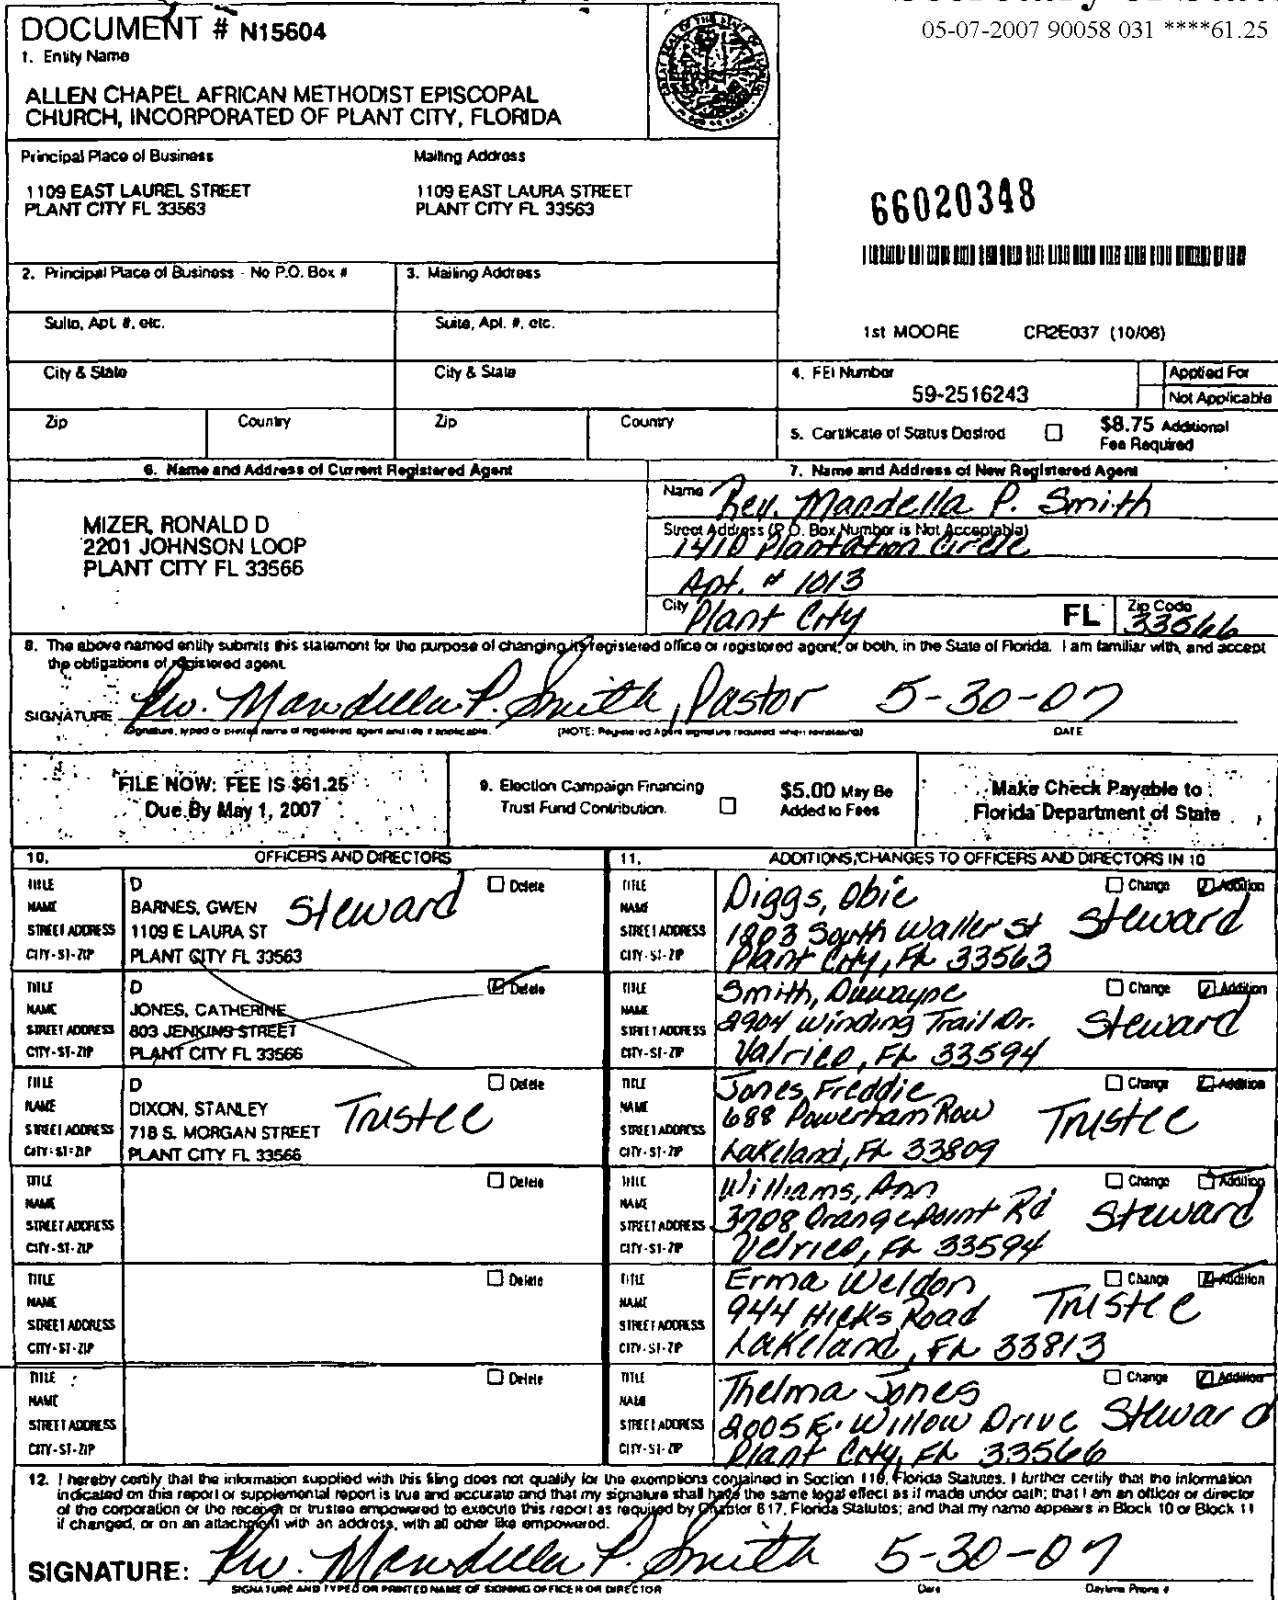 05-07-2007 90058 031 ****61.25
DOCUMENT # N15604
1. Entity Name
ALLEN CHAPEL AFRICAN METHODIST EPISCOPAL
CHURCH, INCORPORATED OF PLANT CITY, FLORIDA
Principal Place of Business
Mailing Address
1109 EAST LAUREL STREET
PLANT CITY FL 33563
1109 EAST LAURA STREET
PLANT CITY FL 33563
66020348
1st MOORE CR2E037 (10/06)
2. Principal Place of Business - No P.O. Box #
3. Mailing Address
Suite, Apt. #, etc.
Suite, Apt. #, etc.
City & State
City & State
Zip Country
Zip Country
4. FEI Number
59-2516243
Applied For
Not Applicable
5. Certificate of Status Desired
$8.75 Additional
Fee Required
6. Name and Address of Current Registered Agent
MIZER, RONALD D
2201 JOHNSON LOOP
PLANT CITY FL 33566
7. Name and Address of New Registered Agent
Name Rev. Mandella P. Smith
Street Address (P.O. Box Number is Not Acceptable)
1410 Plantation Circle
Apt. # 1013
City Plant City FL Zip Code 33566
8. The above named entity submits this statement for the purpose of changing its registered office or registered agent, or both, in the State of Florida. I am familiar with, and accept
the obligations of registered agent.
SIGNATURE Rev. Mandella P. Smith, Pastor 5-30-07
Signature, typed or printed name of registered agent and title if applicable. (NOTE: Registered Agent signature required when reinstating) DATE
FILE NOW: FEE IS $61.25
Due By May 1, 2007
9. Election Campaign Financing
Trust Fund Contribution.
$5.00 May Be
Added to Fees
Make Check Payable to
Florida Department of State
10. OFFICERS AND DIRECTORS
TITLE D Delete
NAME BARNES, GWEN Steward
STREET ADDRESS 1109 E LAURA ST
CITY-ST-ZIP PLANT CITY FL 33563
TITLE D Delete
NAME JONES, CATHERINE
STREET ADDRESS 803 JENKINS STREET
CITY-ST-ZIP PLANT CITY FL 33566
TITLE D Delete
NAME DIXON, STANLEY Trustee
STREET ADDRESS 718 S. MORGAN STREET
CITY-ST-ZIP PLANT CITY FL 33566
TITLE Delete
NAME
STREET ADDRESS
CITY-ST-ZIP
TITLE Delete
NAME
STREET ADDRESS
CITY-ST-ZIP
TITLE Delete
NAME
STREET ADDRESS
CITY-ST-ZIP
11. ADDITIONS/CHANGES TO OFFICERS AND DIRECTORS IN 10
TITLE Change Addition
NAME Diggs, Obie Steward
STREET ADDRESS 1203 South Waller St
CITY-ST-ZIP Plant City, FL 33563
TITLE Change Addition
NAME Smith, Duwayne Steward
STREET ADDRESS 2904 Winding Trail Dr.
CITY-ST-ZIP Valrico, FL 33594
TITLE Jones, Freddie Change Addition
NAME Trustee
STREET ADDRESS 688 Powerham Row
CITY-ST-ZIP Lakeland, FL 33809
TITLE Williams, Ann Change Addition
NAME Steward
STREET ADDRESS 3708 Orangepoint Rd
CITY-ST-ZIP Velrico, FL 33594
TITLE Erma Weldon Change Addition
NAME Trustee
STREET ADDRESS 944 Hicks Road
CITY-ST-ZIP Lakeland, FL 33813
TITLE Change Addition
NAME Thelma Jones Steward
STREET ADDRESS 2005 E. Willow Drive
CITY-ST-ZIP Plant City, FL 33566
12. I hereby certify that the information supplied with this filing does not qualify for the exemptions contained in Section 119, Florida Statutes. I further certify that the information
indicated on this report or supplemental report is true and accurate and that my signature shall have the same legal effect as if made under oath; that I am an officer or director
of the corporation or the receiver or trustee empowered to execute this report as required by Chapter 617, Florida Statutes; and that my name appears in Block 10 or Block 11
if changed, or on an attachment with an address, with all other like empowered.
SIGNATURE: Rev. Mandella P. Smith 5-30-07
SIGNATURE AND TYPED OR PRINTED NAME OF SIGNING OFFICER OR DIRECTOR Date Daytime Phone #